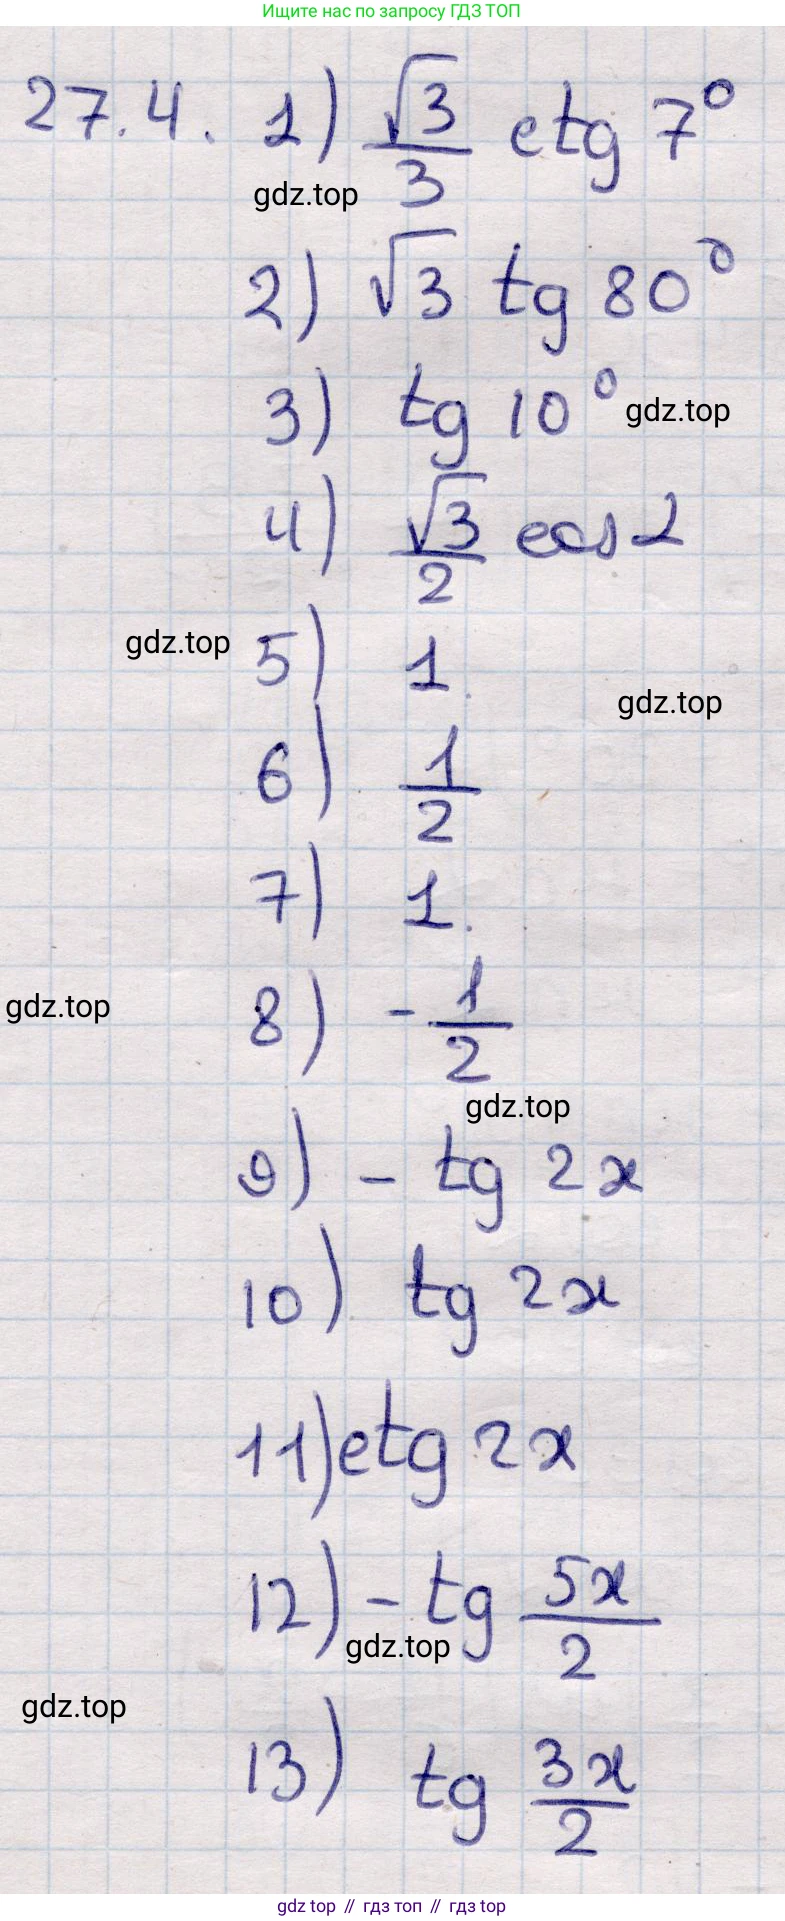 Ищите нас по запросу ГДЗ ТОП
27.4. 1) √3/3 ctg 7°
gdz.top
2) √3 tg 80°
3) tg 10°
gdz.top
4) √3/2 cos 2
gdz.top
5) 1.
gdz.top
6) 1/2
7) 1.
gdz.top
8) -1/2
gdz.top
9) - tg 2x
10) tg 2x
11) ctg 2x
12) - tg 5x/2
gdz.top
gdz.top
13) tg 3x/2
gdz top // гдз топ // гдз top